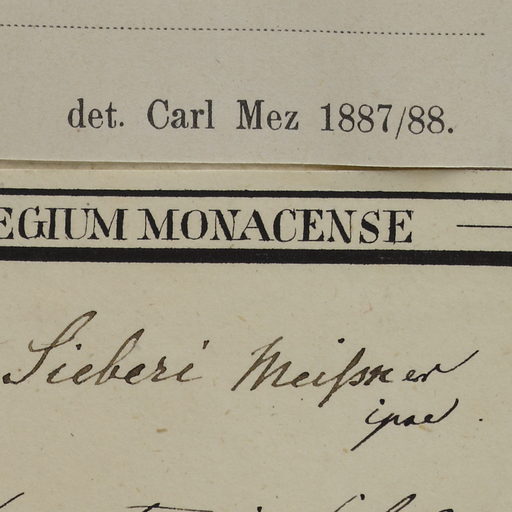 det. Carl Mez 1887/88.
EGIUM MONACENSE
Sieberi Meißner
ipse.